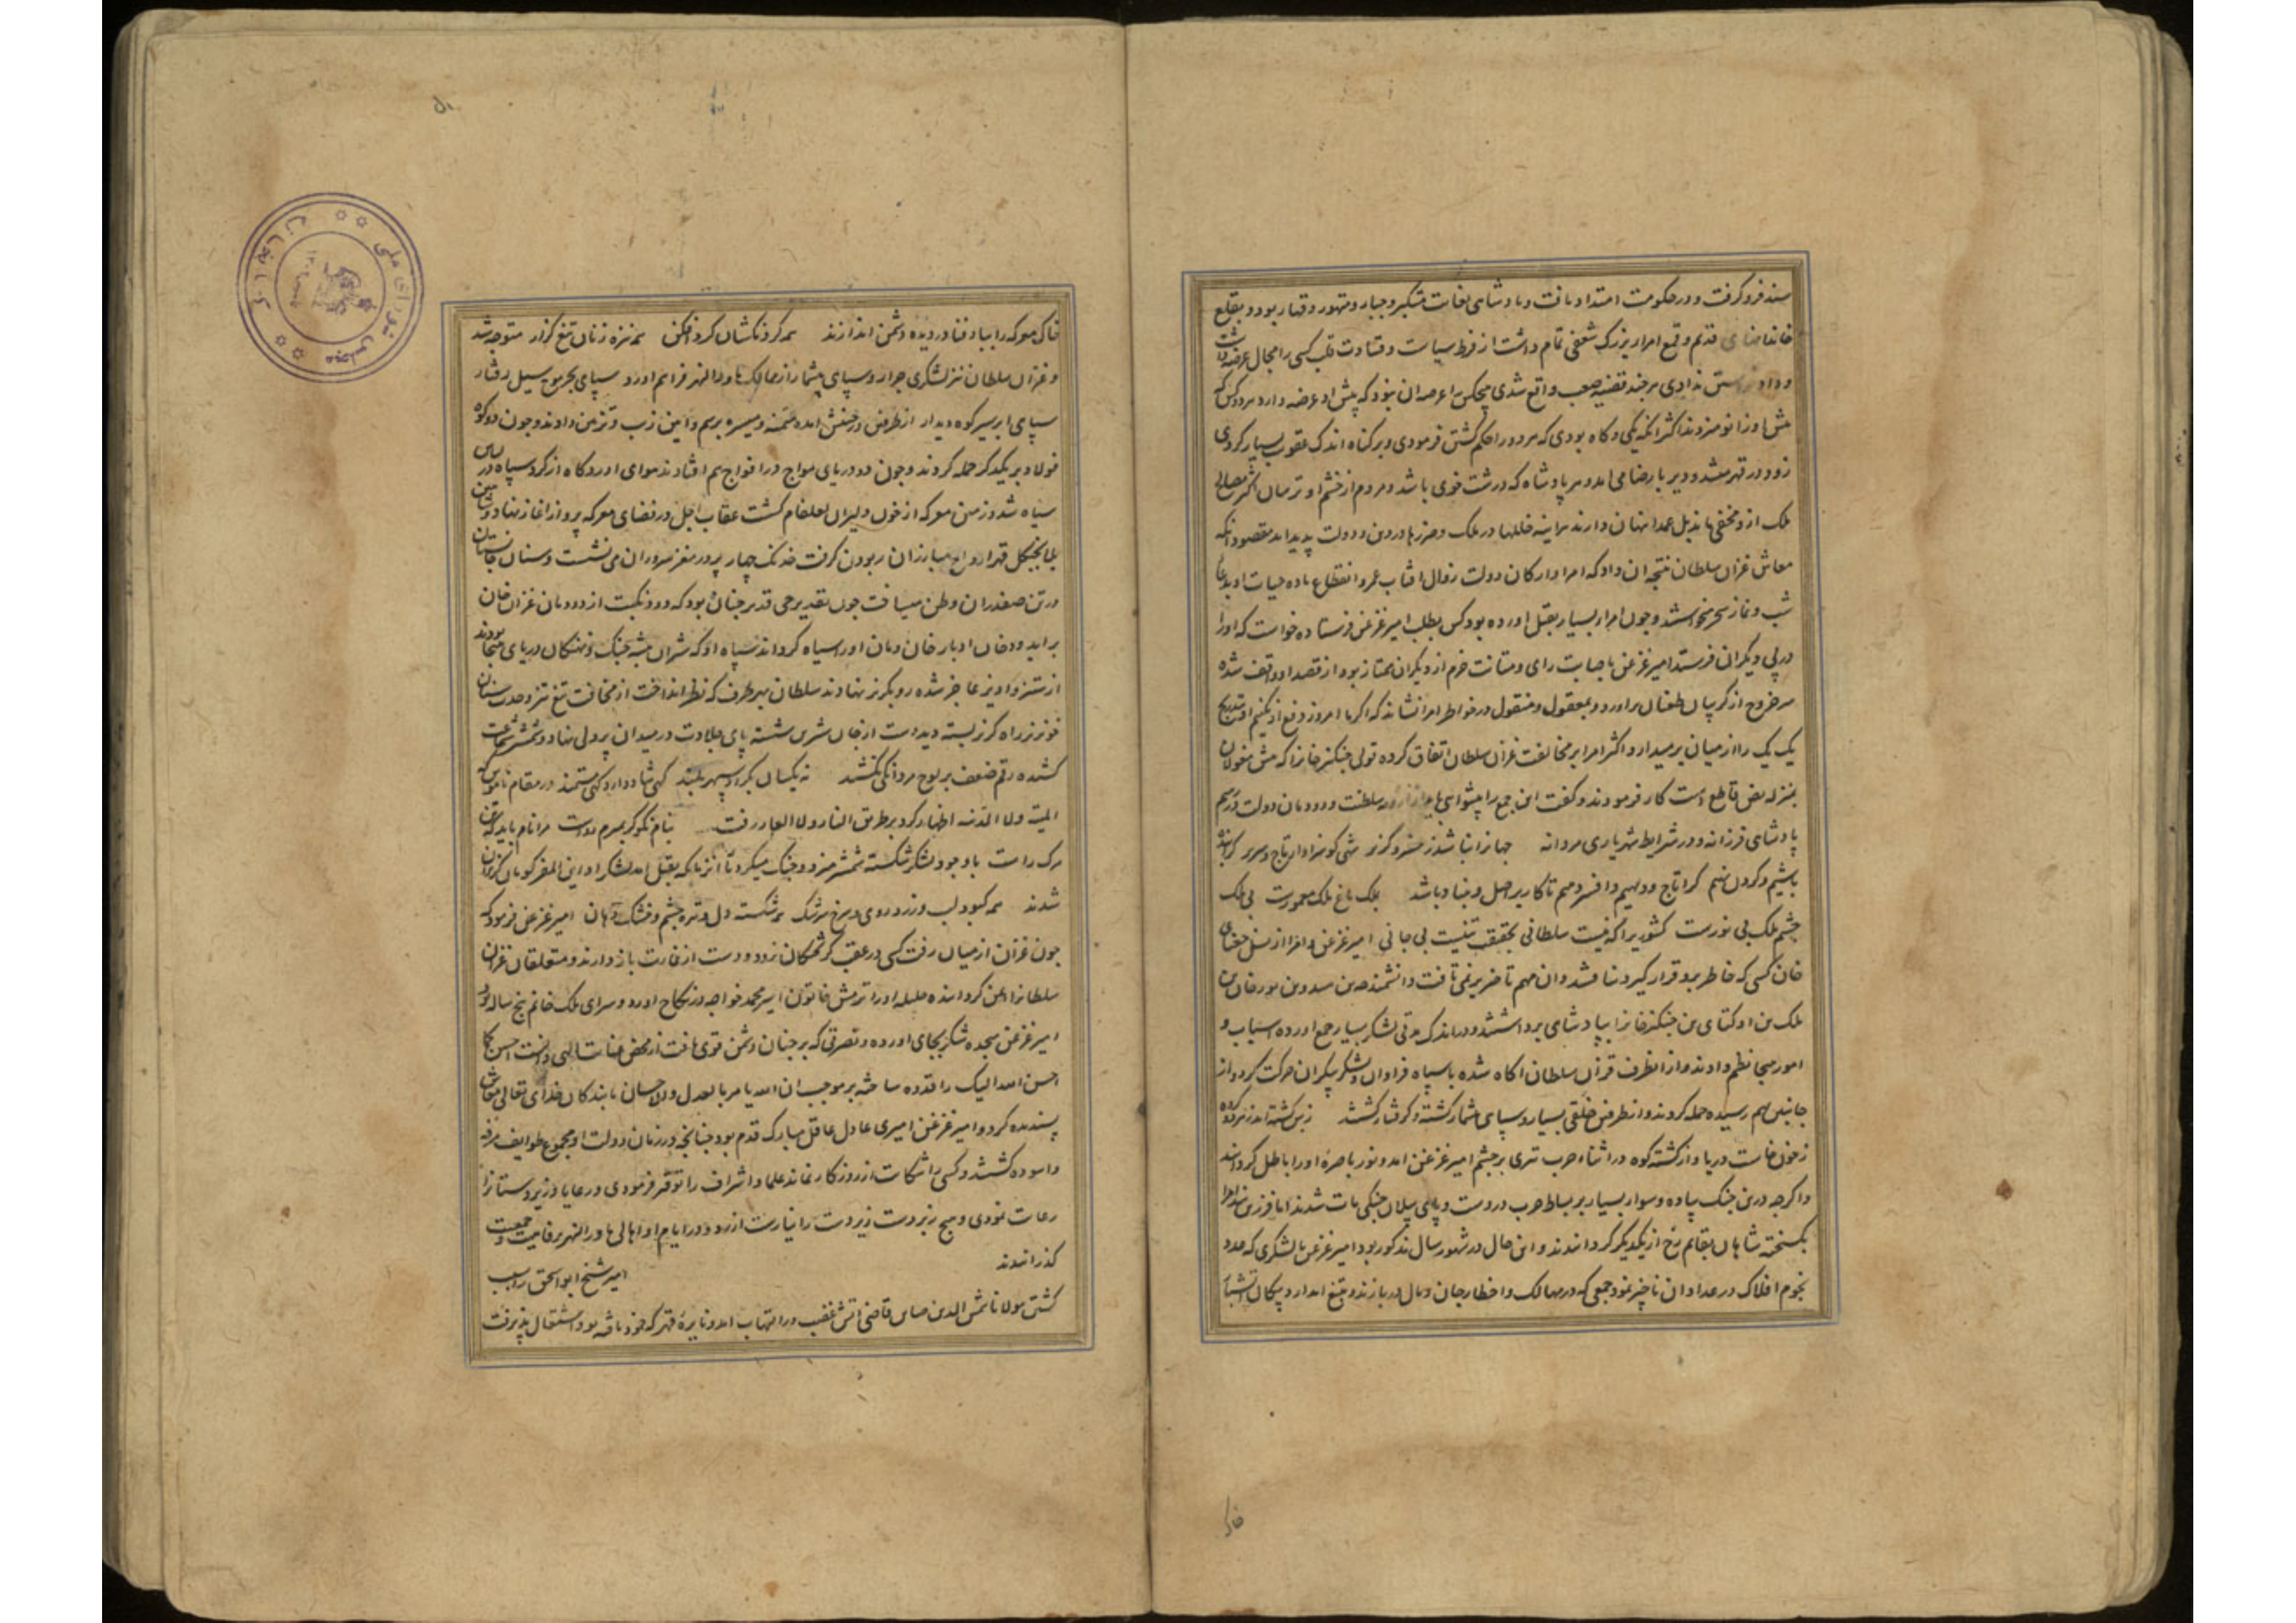 سند فرو گرفت و در حکومت امتداد یافت و پادشاهی بغایت متکبر و جبار و متهور و قهار بود و بقلع
خاندانهای قدیم و قمع امرا بزرک شعفی تمام داشت از فرط سیاست و قساوت قلب کسی را مجال عرضه داشت
نبودی هر چند قضیه صعب واقع شدی هیچکس را عرصه ان نبود که پیش او عرضه دارد هر دو کس که
پیش او زانو میزدند اکثر انکه یکی و کاه بودی که هر دو را حکم کشتن فرمودی و بر کناه اندک عقوبت بسیار کردی
زود در قهر میشد و دیر با رضا می امد و هر پادشاه که درشت خوی باشد و مردم از خشم او ترسان اکثر مصالح
ملک ازو مخفی ماند بل عمدا نهان دارند هراینه خللها در ملک و ضررها در دین و دولت پدید اید مقصود انکه
معاش غزان سلطان نتیجه ان داد که امرا و ارکان دولت زوال افتاب عمر و انقطاع ماده حیات او بدعا
شب و نماز سحر میخواستند و چون امراء بسیار بقتل اورده بود کس بطلب امیر غزغن فرستاده خواست که او را
در پی دیکران فرستد امیر غزغن باصابت رای و متانت حزم از دیکران ممتاز بود از قصد او واقف شده
سر خروج از کریبان طغیان براورد و بمعقول و منقول در خواطر امرا نشاند که اکر ما امروز دفع او نکنیم او بتدریج
یک یک را از میان بر میدارد اکثر امرا بر مخالفت غزان سلطان اتفاق کرده تولی چنکز خانرا که پیش مغولان
بمنزله نص قاطع است کار فرمودند و کفت این جمع را پیشوایی باید از سلطنت و دودمان دولت و رسم
پادشاهی فرزانه و در شرایط شهریاری مردانه جهانرا نباشد ز خسرو کزیر شهی کو سزاوار تاج و سریر
باشیم و کردن نهیم کرا تاج و دیهیم و افسر دهیم تا کار بر اصل و بنیاد باشد ملک باغ ملک معمورست بی ملک
چشم ملک بی نورست کشوریرا که نیست سلطانی بحقیقت تنیست بی جانی امیر غزغن و امرا از نسل جغتای
خان کسی که خاطر برو قرار کیرد نیافتند و ان مهم تاخیر برنمی تافت دانشمندجه بن سیدو بن مورخان بن
ملک بن اوکتای بن چنکز خانرا بپادشاهی برداشتند و در اندک مدتی لشکر بسیار جمع اورده اسباب و
امور مهیا نظم دادند و از انطرف قزان سلطان اکاه شده با سپاه فراوان و لشکر بیکران حرکت کرد و از
جانبین بهم رسیده حمله کردند و از طرفین خلقی بسیار و سپاهی بیشمار کشته و کرفتار کشتند زبس کشته اندر نبرد کوه
ز خون خاست دریا و از کشته کوه در اثناء حرب تیری بر چشم امیر غزغن امد و نور باصره او را باطل کردانید
و اکرچه درین جنک پیاده و سوار بسیار بر بساط حرب در دست و پای پیلان جنکی مات شدند اما فرزین بند امرا
نکسیخته شاهان بقایم رخ از یکدیکر کردانیدند و این حال در شهور سال مذکور بود امیر غزغن با لشکری که عدد
نجوم افلاک در عداد ان ناچیز نمود جمعی که در مهالک و اخطار جان و مال در بازند و بتیغ ابدار و پیکان اتشبار
خاک
خاک معرکه را بباد فنا در دیده دشمن اندازند همه کردنکشان کرد افکن همه نیزه زنان تیغ کزار متوجه شد
و غزان سلطان نیز لشکری جرار و سپاهی بیشمار از ممالک ماوراالنهر فراهم اورد و سپاهی بحر موج سیل رفتار
سپاهی ابر سیر کوه دیدار از طرفین در جنبش امده میمنه و میسره برسم و ایین زیب و تزیین دادند و چون دو کوه
فولاد بر یکدیکر حمله کردند و چون دو دریای مواج در افواج هم افتادند هوای اوردکاه از کرد سپاه در لباس
سیاه شد و زمین معرکه از خون دلیران لعلفام کشت عقاب اجل در فضای معرکه پرواز اغاز نهاد و شاهین
بلا بچنکل قهر ارواح مبارزان ربودن کرفت خدنک چهار پر در مغز سروران می نشست و سنان جانستان
در تن صفدران وطن میساخت چون تقدیر حی قدیر چنان بود که دود نکبت از دودمان غزان خان
براید و دخان ادبار خان و مان او را سیاه کرداند سپاه او که شیران بیشه جنک و نهنکان دریای هیجا بودند
از ستیز و اویز عاجز شده رو بکریز نهادند سلطان بهر طرف که نظر انداخت از مخافت تیغ تیز و حدت سنان
خونریز راه کریز بسته دید دست از جان شیرین شسته پای جلادت در میدان پردلی نهاد و شمشیر شجاعت
کشیده رقم ضعف بر لوح مردانکی نکشید نه یکسان بکردد سپهر بلند کهی شاد دارد کهی مستمند در مقام ناموس که
المنیة و لا الدنیه اظهار کرد بر طریق النار و لا العار رفت بنام نکو کر بمیرم رواست مرا نام باید که تن
مرک راست با وجود لشکر شکسته شمشیر میزد و جنک میکرد تا انزمان که بقتل امد لشکر او این المفر کویان کریزان
شدند همه کبود لب و زرد روی و سرخ سرشک همه شکسته دل و تیره چشم و خشک دهان امیر غزغن فرمود که
چون غزان از میان رفت کسی در عقب کریختکان نرود و دست از غارت باز دارند و متعلقان غزان
سلطانرا ایمن کردانیده حلیله او را ترمش خاتون امیر محمد خواجه در نکاح اورد و سرای ملک خانم پنج ساله بود
امیر غزغن سجده شکر بجای اورده و نصرتی که بر چنان دشمن قوی یافت از محض عنایت الهی دانست احسن کما
احسن الله الیک را قدوه ساخته بر موجب ان الله یامر بالعدل و الاحسان با بندکان خدای تعالی معاش
پسندیده کرد و امیر غزغن امیری عادل عاقل مبارک قدم بود چنانچه در زمان دولت او مجموع طوایف مرفه
و اسوده کشتند و کسی را شکایت از روزکار نماند علما و اشراف را توقیر فرمودی و رعایا و زیردستانرا
رعایت نمودی و هیچ زبردست زیردست را نیارست ازرد و در ایام او اهالی ماوراالنهر برفاهیت و جمعیت
کذرانیدند امیر شیخ ابو اسحق را بسبب
کشتن مولانا شمس الدین صاین قاضی اتش غضب در التهاب امد و نایره قهر که خود نافته بود اشتعال پذیرفت